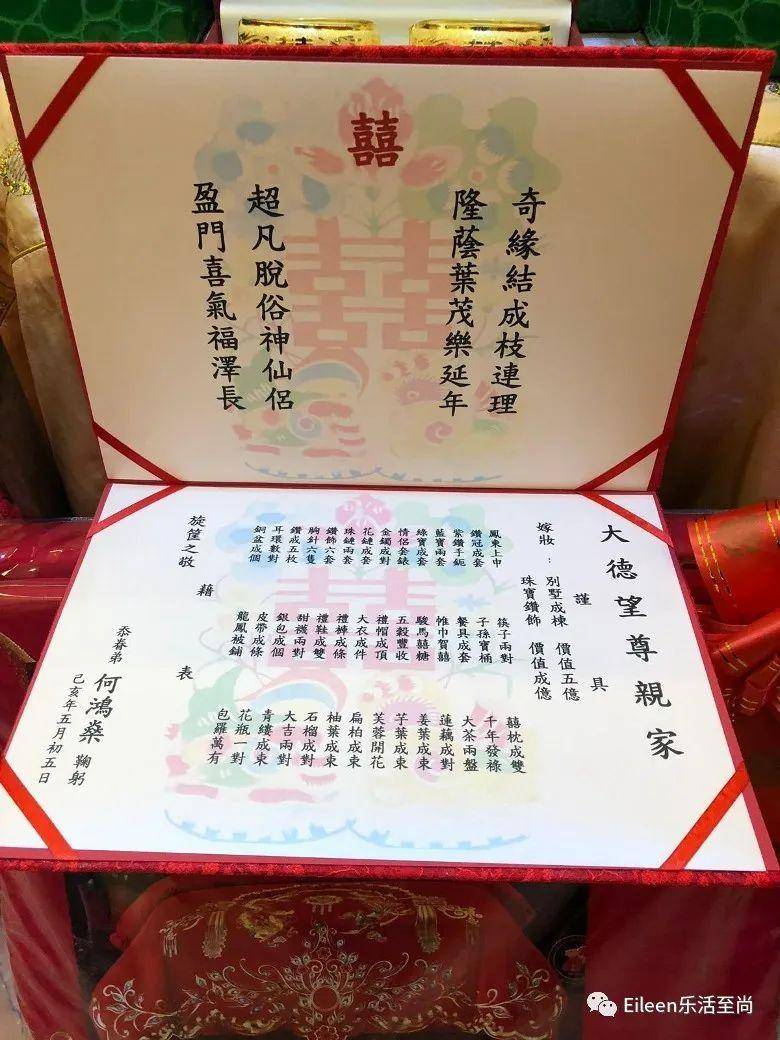 囍
奇緣結成枝連理
隆蔭葉茂樂延年
超凡脫俗神仙侶
盈門喜氣福澤長
大德望尊親家
謹具
嫁妝：別墅成棟 價值五億
珠寶鑽飾 價值成億
鳳柬上申
鑽冠成套
紫鑽手鈪
藍寶兩套
綠寶成套
情侶套錶
金鐲成對
花鏈成套
珠鏈兩套
鑽飾六套
胸針六隻
鑽戒五枚
耳環數對
銅盆成個
筷子兩對
子孫寶桶
餐具成套
帷巾賀囍
駿馬囍糖
五穀豐收
禮帽成頂
大衣成件
禮褲成條
禮鞋成雙
甜襪兩對
銀包成個
皮帶成條
龍鳳被鋪
囍枕成雙
千年發祿
大茶兩盤
蓮藕成對
姜葉成束
芋葉成束
芙蓉開花
扁柏成束
柚葉成束
石榴成對
大吉兩對
青縷成束
花瓶一對
包羅萬有
藉表
旋筐之敬
忝眷弟 何鴻燊 鞠躬
己亥年五月初五日
Eileen乐活至尚